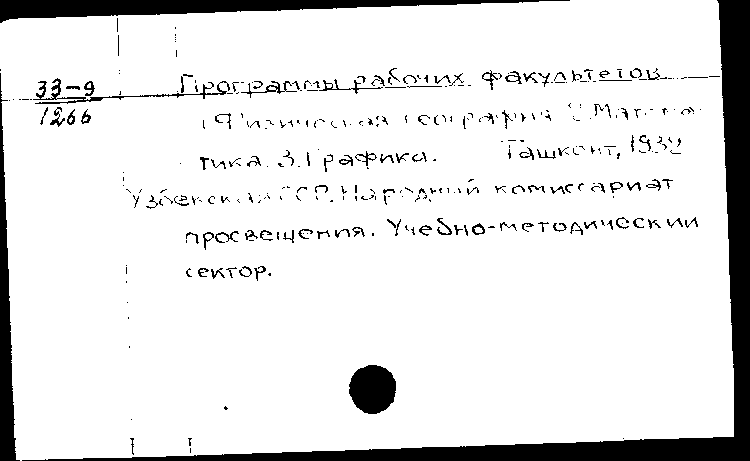 33-9
1266
Программы рабочих факультетов
1 Физическая география 2. Матема-
тика. 3. Графика. Ташкент, 1932
Узбекская ССР. Народный комиссариат
просвещения. Учебно-методический
сектор.